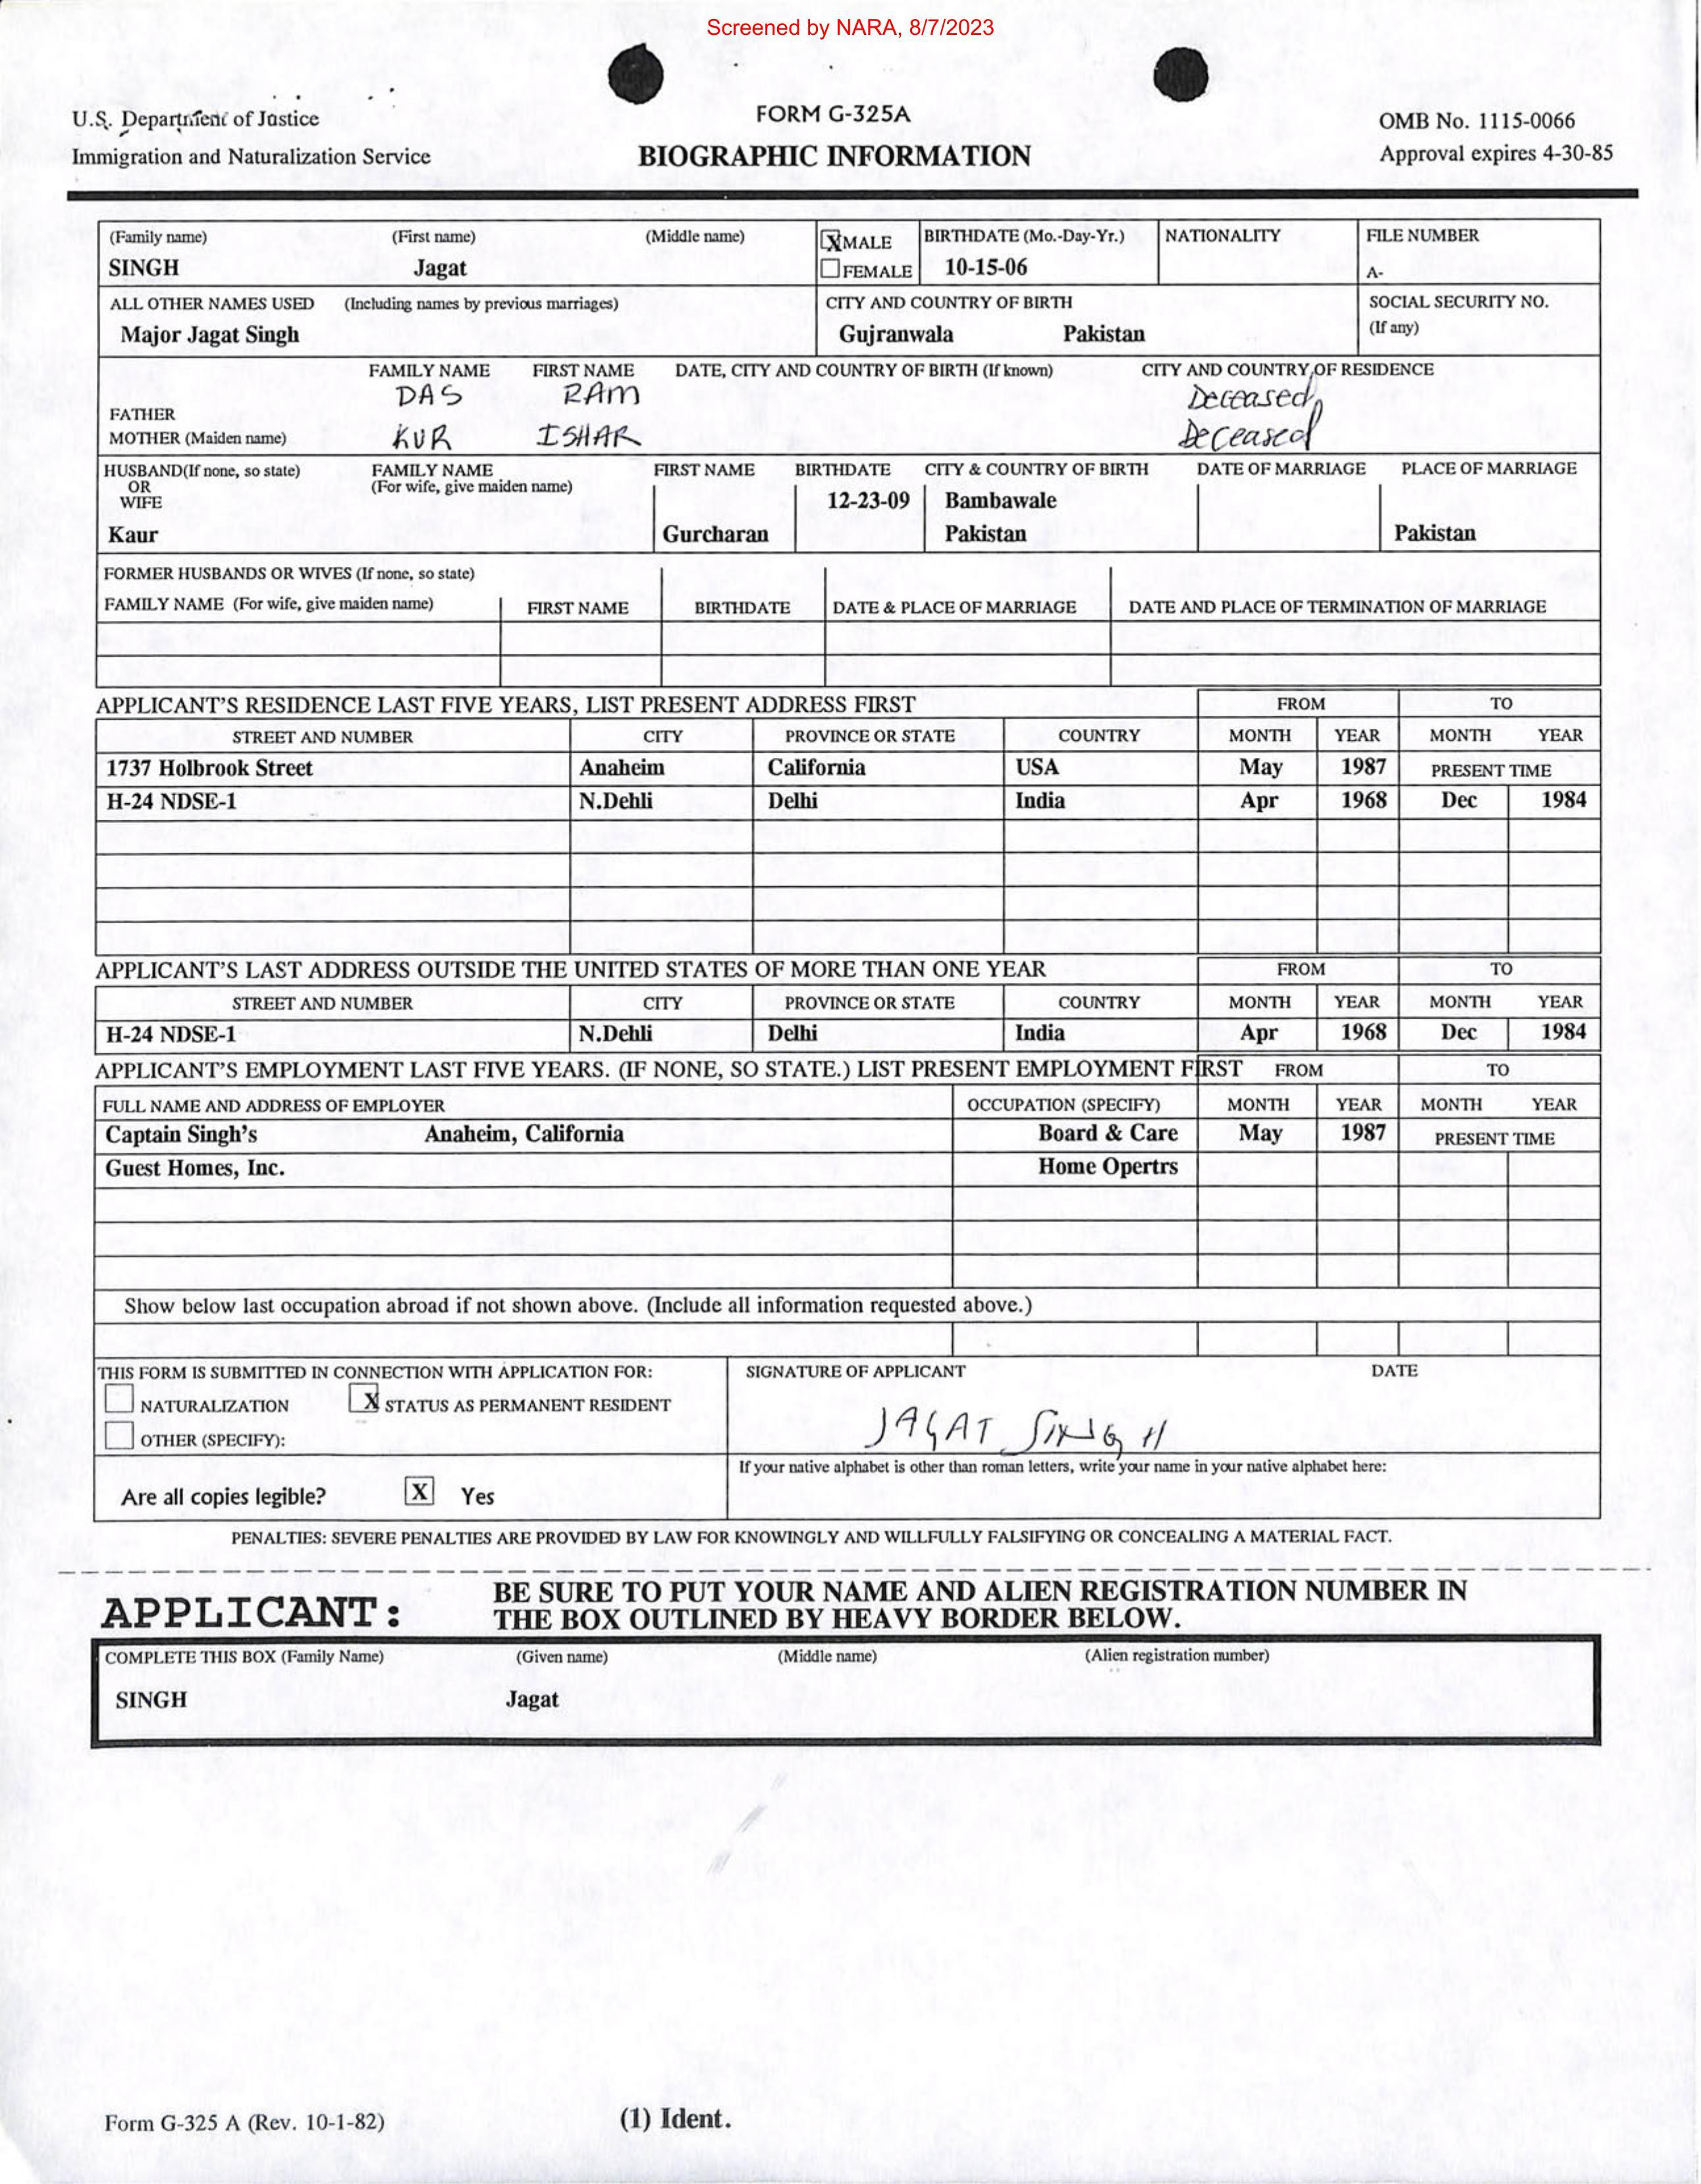 Screened by NARA, 8/7/2023
U.S. Department of Justice
Immigration and Naturalization Service
FORM G-325A
BIOGRAPHIC INFORMATION
OMB No. 1115-0066
Approval expires 4-30-85
(Family name) (First name) (Middle name) X MALE BIRTHDATE (Mo.-Day-Yr.) NATIONALITY FILE NUMBER
SINGH Jagat FEMALE 10-15-06 A-
ALL OTHER NAMES USED (Including names by previous marriages) CITY AND COUNTRY OF BIRTH SOCIAL SECURITY NO.
(If any)
Major Jagat Singh Gujranwala Pakistan
FAMILY NAME FIRST NAME DATE, CITY AND COUNTRY OF BIRTH (If known) CITY AND COUNTRY OF RESIDENCE
FATHER DAS RAM Deceased
MOTHER (Maiden name) KUR ISHAR Deceased
HUSBAND(If none, so state) FAMILY NAME FIRST NAME BIRTHDATE CITY & COUNTRY OF BIRTH DATE OF MARRIAGE PLACE OF MARRIAGE
OR (For wife, give maiden name)
WIFE 12-23-09 Bambawale
Kaur Gurcharan Pakistan Pakistan
FORMER HUSBANDS OR WIVES (If none, so state)
FAMILY NAME (For wife, give maiden name) FIRST NAME BIRTHDATE DATE & PLACE OF MARRIAGE DATE AND PLACE OF TERMINATION OF MARRIAGE
APPLICANT'S RESIDENCE LAST FIVE YEARS, LIST PRESENT ADDRESS FIRST FROM TO
STREET AND NUMBER CITY PROVINCE OR STATE COUNTRY MONTH YEAR MONTH YEAR
1737 Holbrook Street Anaheim California USA May 1987 PRESENT TIME
H-24 NDSE-1 N.Dehli Delhi India Apr 1968 Dec 1984
APPLICANT'S LAST ADDRESS OUTSIDE THE UNITED STATES OF MORE THAN ONE YEAR FROM TO
STREET AND NUMBER CITY PROVINCE OR STATE COUNTRY MONTH YEAR MONTH YEAR
H-24 NDSE-1 N.Dehli Delhi India Apr 1968 Dec 1984
APPLICANT'S EMPLOYMENT LAST FIVE YEARS. (IF NONE, SO STATE.) LIST PRESENT EMPLOYMENT FIRST FROM TO
FULL NAME AND ADDRESS OF EMPLOYER OCCUPATION (SPECIFY) MONTH YEAR MONTH YEAR
Captain Singh's Anaheim, California Board & Care May 1987 PRESENT TIME
Guest Homes, Inc. Home Opertrs
Show below last occupation abroad if not shown above. (Include all information requested above.)
THIS FORM IS SUBMITTED IN CONNECTION WITH APPLICATION FOR: SIGNATURE OF APPLICANT DATE
NATURALIZATION X STATUS AS PERMANENT RESIDENT
OTHER (SPECIFY): JAGAT SINGH
If your native alphabet is other than roman letters, write your name in your native alphabet here:
Are all copies legible? X Yes
PENALTIES: SEVERE PENALTIES ARE PROVIDED BY LAW FOR KNOWINGLY AND WILLFULLY FALSIFYING OR CONCEALING A MATERIAL FACT.
APPLICANT: BE SURE TO PUT YOUR NAME AND ALIEN REGISTRATION NUMBER IN
THE BOX OUTLINED BY HEAVY BORDER BELOW.
COMPLETE THIS BOX (Family Name) (Given name) (Middle name) (Alien registration number)
SINGH Jagat
Form G-325 A (Rev. 10-1-82) (1) Ident.